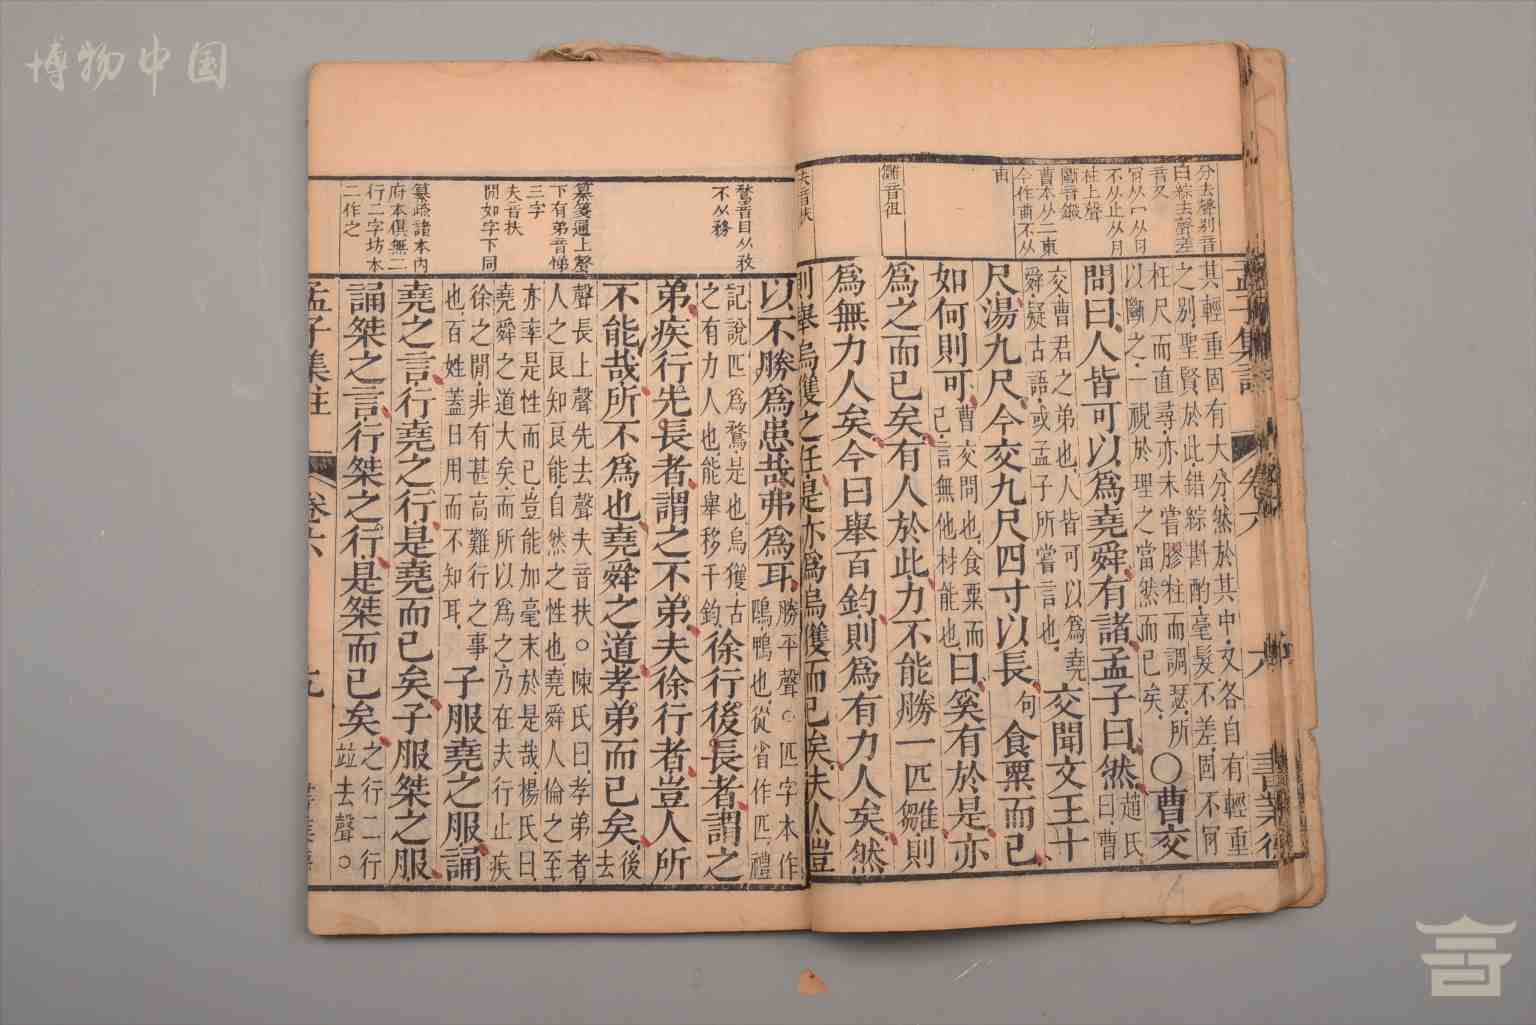 博物中国
分去聲别音
白綜去聲差
音叉
不从止从月
柱上聲
斷音鍛
曹本从二東
今作曹不从
雛音祖
夫音扶
孟子集註
卷六
其輕重固有大分然於其中又各自有輕重
之别聖賢於此錯綜斟酌毫髮不差固不
枉尺而直尋亦未嘗膠柱而調瑟所
以斷之一視於理之當然而已矣
○曹交
問曰人皆可以為堯舜有諸孟子曰然
趙氏
曰曹
交曹君之弟也人皆可以為堯
舜疑古語或孟子所嘗言也
交聞文王十
尺湯九尺今交九尺四寸以長
句
食粟而已
如何則可
曹交問也食粟而
已言無他材能也
曰奚有於是亦
為之而已矣有人於此力不能勝一匹雛則
為無力人矣今曰舉百鈞則為有力人矣然
則舉烏獲之任是亦為烏獲而已矣夫人豈
鶩音目从敄
不从務
纂箋通上聲
下有弟音悌
三字
夫音扶
閒如字下同
纂疏諸本内
府本俱無二
行二字坊本
二作之
以不勝為患哉弗為耳
勝平聲○匹字本作
鴄鴨也從省作匹禮
記說匹為鶩是也烏獲古
之有力人也能舉移千鈞
徐行後長者謂之
弟疾行先長者謂之不弟夫徐行者豈人所
不能哉所不為也堯舜之道孝弟而已矣
後
去
聲長上聲先去聲夫音扶○陳氏曰孝弟者
人之良知良能自然之性也堯舜人倫之至
亦率是性而已豈能加毫末於是哉楊氏曰
堯舜之道大矣而所以為之乃在夫行止疾
徐之閒非有甚高難行之事
也百姓蓋日用而不知耳
子服堯之服誦
堯之言行堯之行是堯而已矣子服桀之服
誦桀之言行桀之行是桀而已矣
之行二行
竝去聲○
孟子集註
卷六